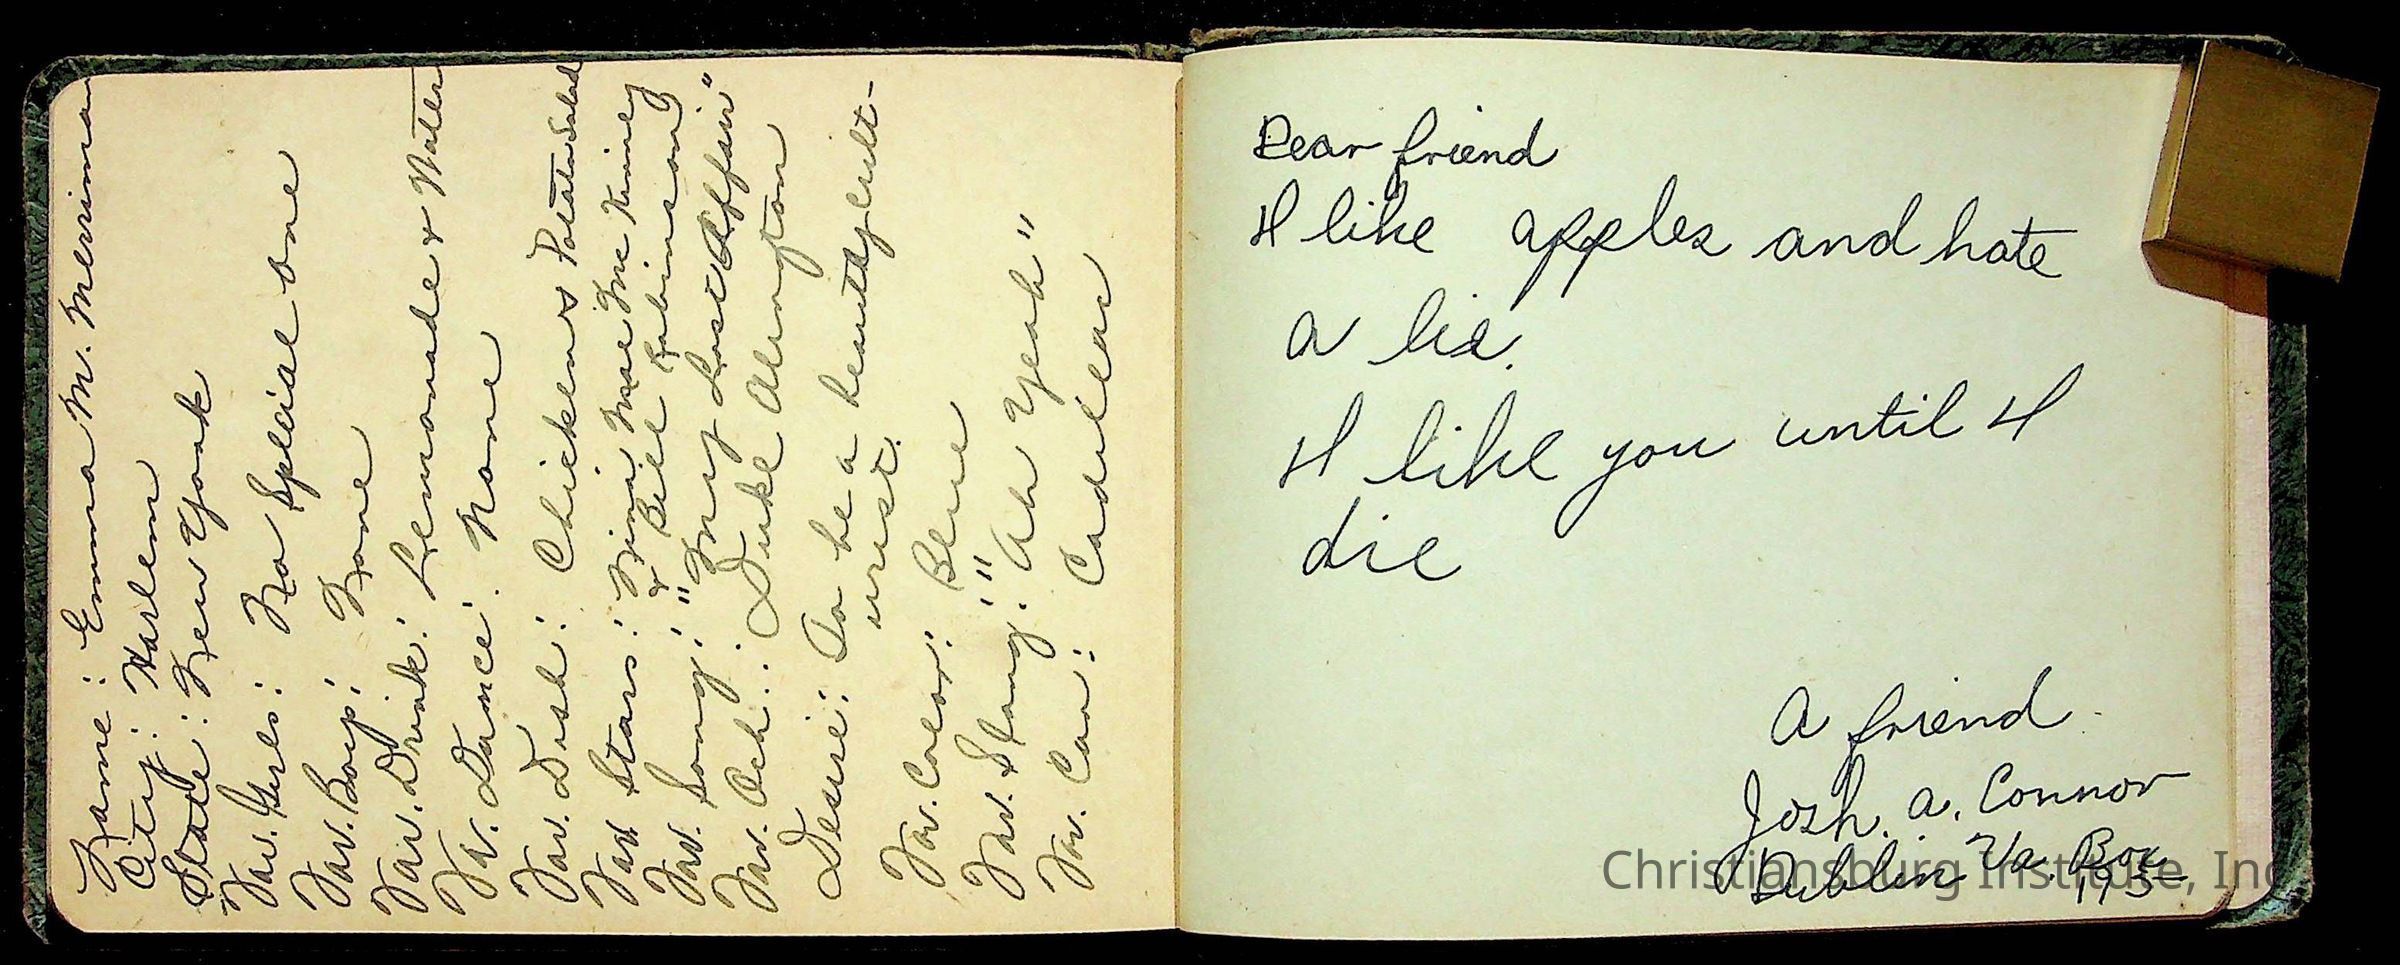 Name: Emma M. Merriman
City: Harlem
State: New York
Fav. Girls: No Special one
Fav. Boys: None
Fav. Drink: Lemonade & Water
Fav. Dance: None
Fav. Dish: Chicken & Potato Salad
Fav. Stars: Nina Mae Mc Kinney
& Bill Robinson
Fav. Song: "My Last Affair"
Fav. Och.: Duke Alington
Desire: To be a beauty cult-
urist.
Fav. Color: Blue
Fav. Slang: "Ah Yeah"
Fav. Car: Cadilear
Dear friend
I like apples and hate
a lie.
I like you until I
die
A friend
Josh. A. Connor
Dublin Va. Box
195
Christiansburg Institute, Inc